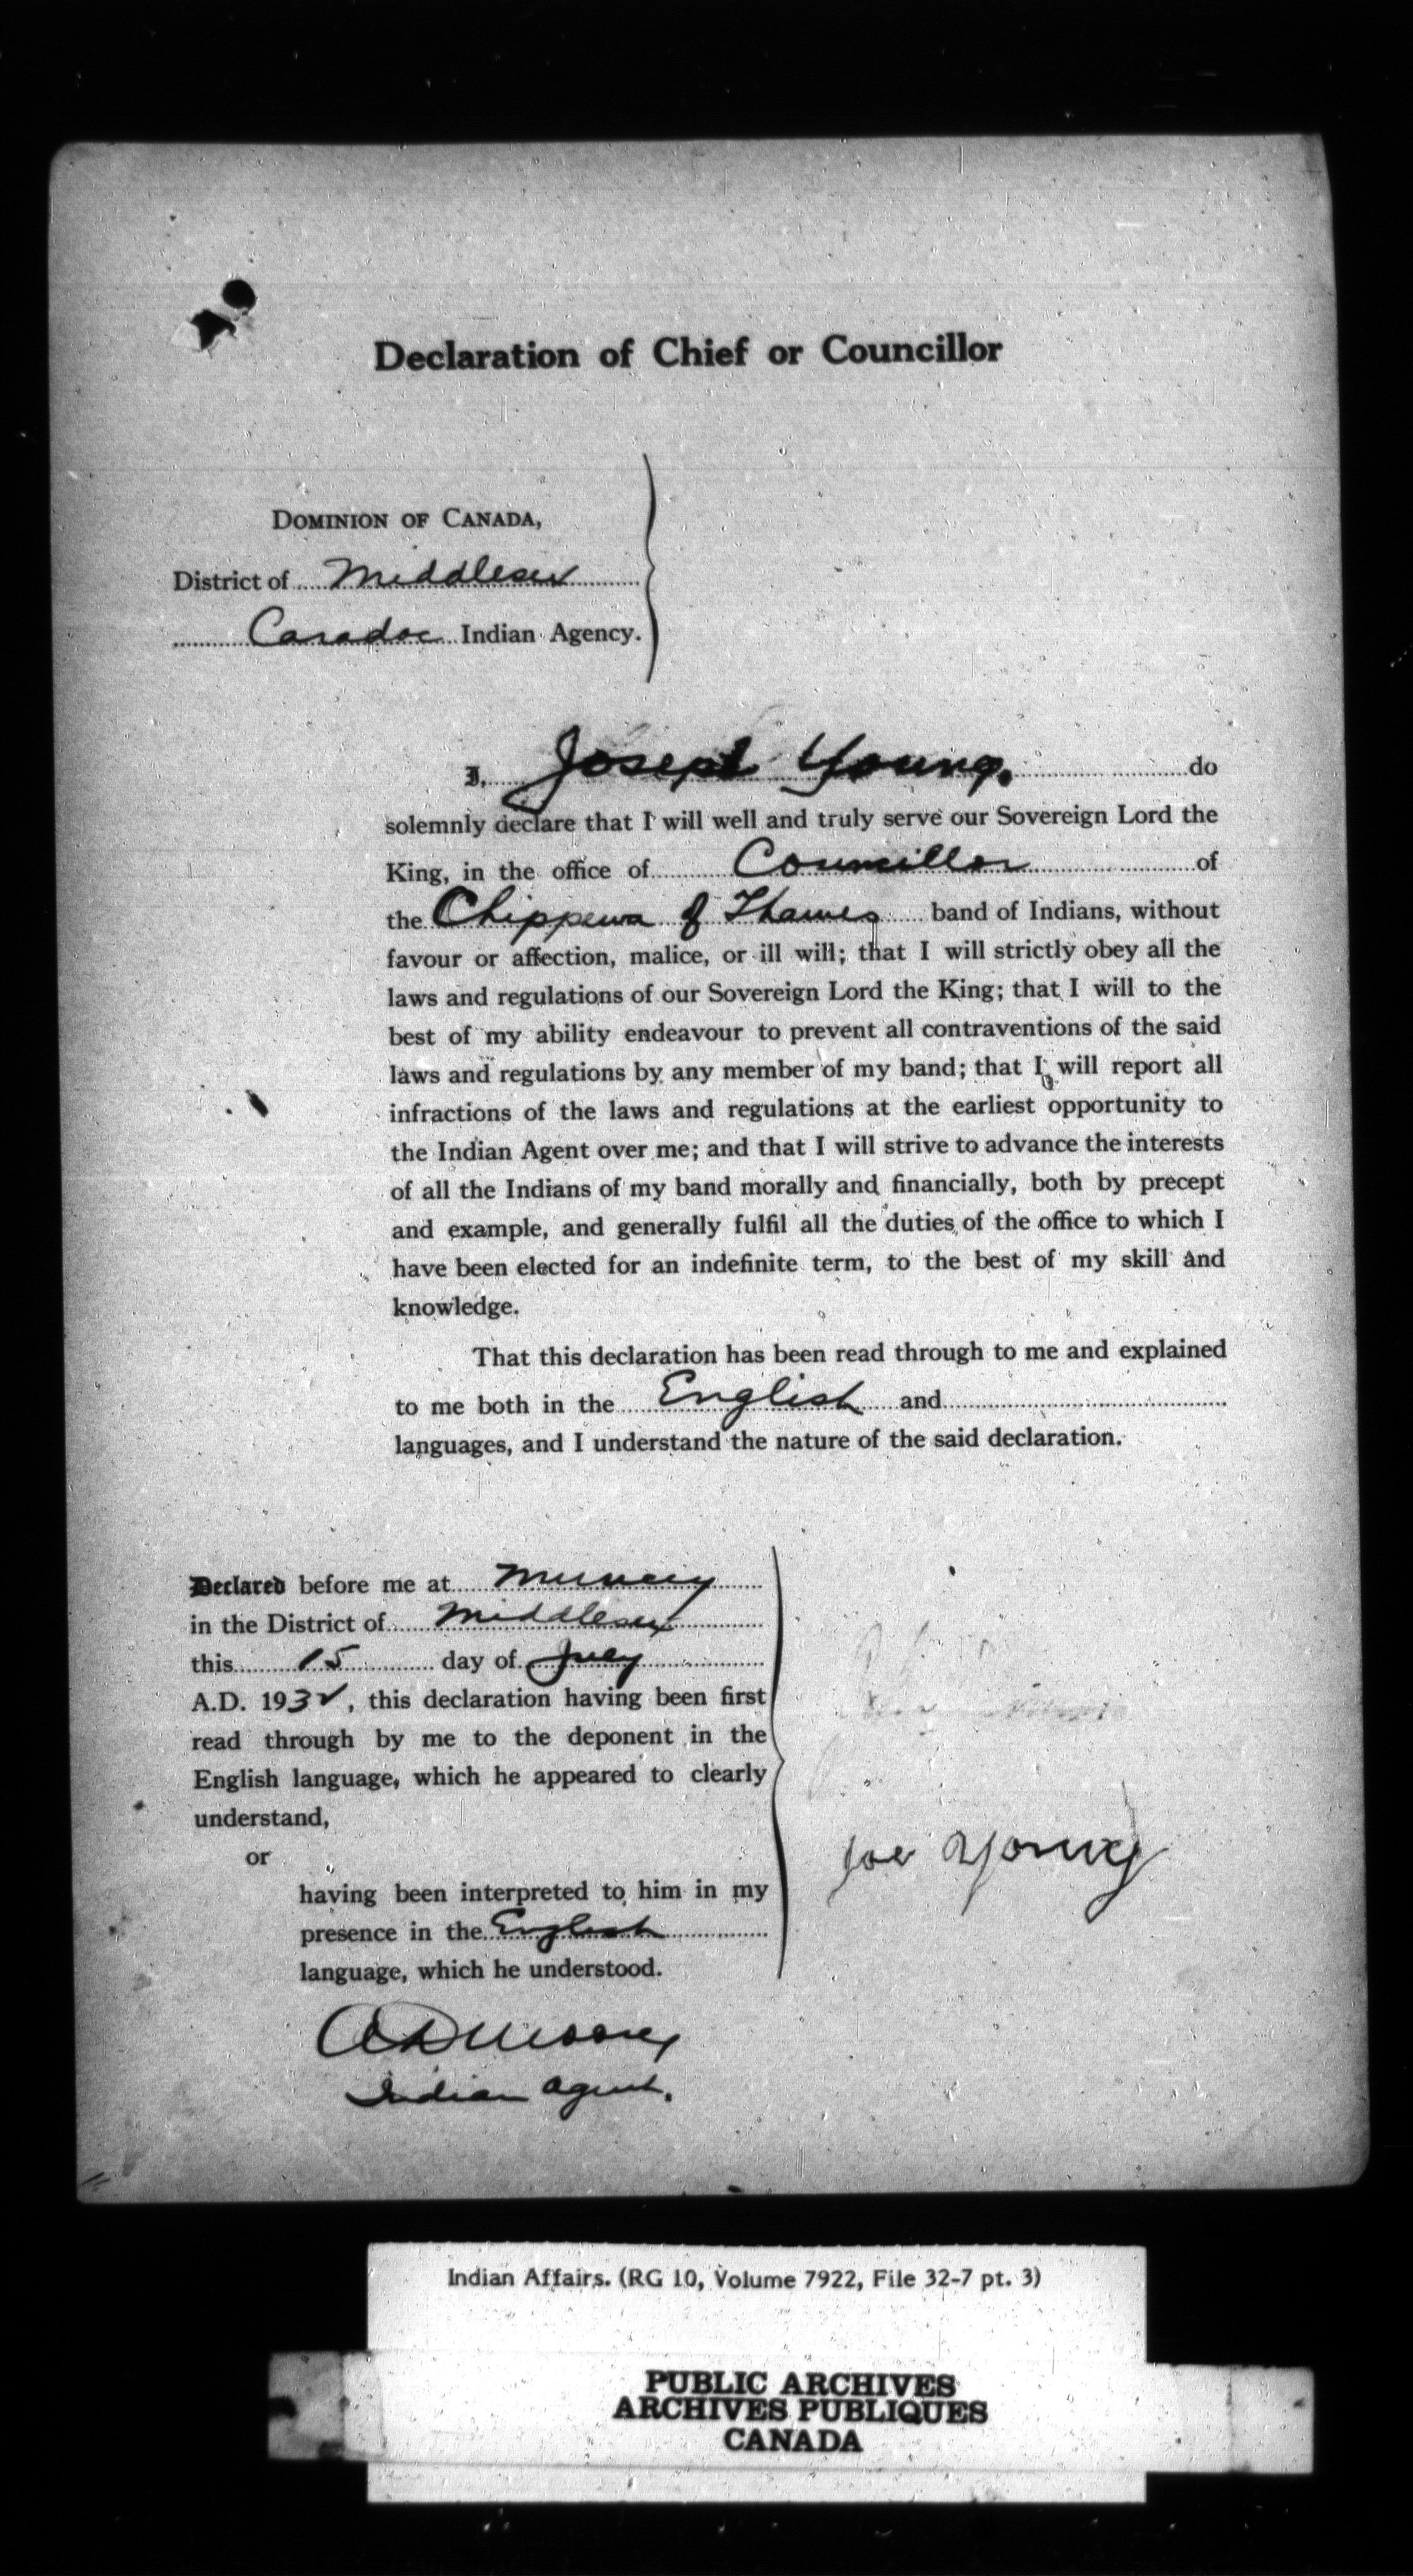 Declaration of Chief or Councillor
DOMINION OF CANADA,
District of Middlesex
Caradoc Indian Agency.
I, Joseph Young. do
solemnly declare that I will well and truly serve our Sovereign Lord the
King, in the office of Councillor of
the Chippewa of Thames band of Indians, without
favour or affection, malice, or ill will; that I will strictly obey all the
laws and regulations of our Sovereign Lord the King; that I will to the
best of my ability endeavour to prevent all contraventions of the said
laws and regulations by any member of my band; that I will report all
infractions of the laws and regulations at the earliest opportunity to
the Indian Agent over me; and that I will strive to advance the interests
of all the Indians of my band morally and financially, both by precept
and example, and generally fulfil all the duties of the office to which I
have been elected for an indefinite term, to the best of my skill and
knowledge.
That this declaration has been read through to me and explained
to me both in the English and
languages, and I understand the nature of the said declaration.
Declared before me at Muncey
in the District of Middlesex
this 15 day of July
A.D. 1932, this declaration having been first
read through by me to the deponent in the
English language, which he appeared to clearly
understand,
or
having been interpreted to him in my
presence in the English
language, which he understood.
Joe Young
Indian Agent.
Indian Affairs. (RG 10, Volume 7922, File 32-7 pt. 3)
PUBLIC ARCHIVES
ARCHIVES PUBLIQUES
CANADA